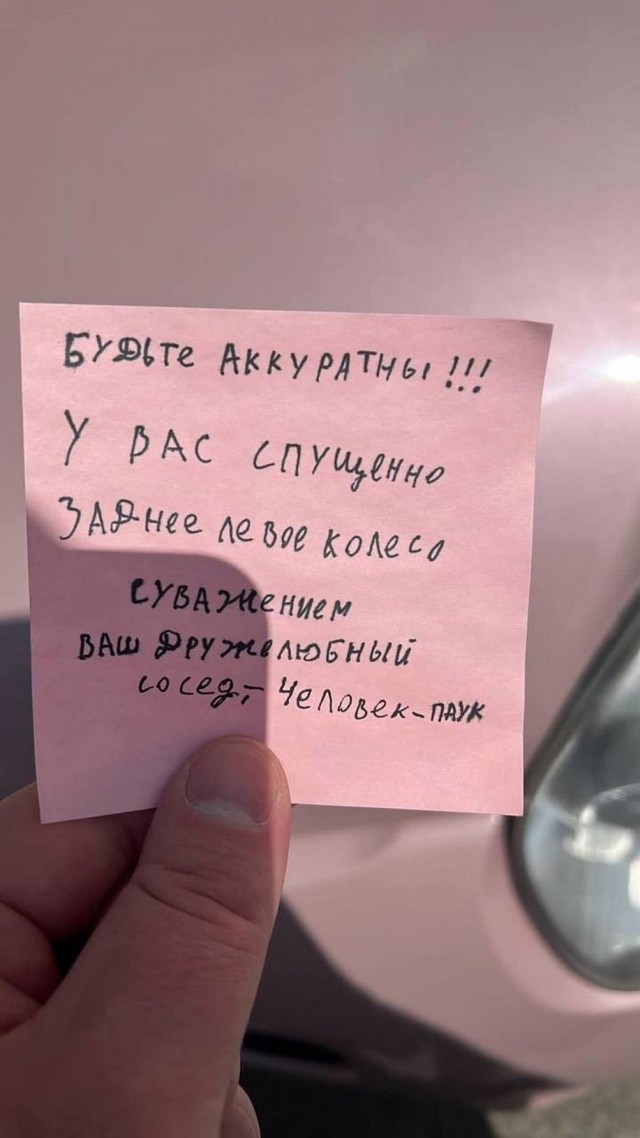 БУДЬТЕ АККУРАТНЫ!!!
У ВАС СПУЩЕННО
ЗАДНЕЕ ЛЕВОЕ КОЛЕСО
СУВАЖЕНИЕМ
ВАШ ДРУЖЕЛЮБНЫЙ
СОСЕД,- ЧЕЛОВЕК-ПАУК